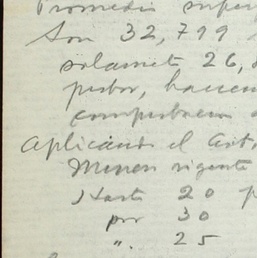 Promedio super
Son 32,799
solamete 26,
pesos, hacen
comprueben
Aplicando el art.
Minera vigente
Hasta 20 p
por 30
". 25